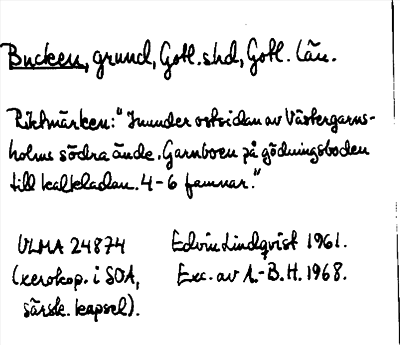 Bucken, grund, Gotl. skd, Gotl. län.
Riktmärken: "Inunder ostsidan av Västergarns-
holms södra ände. Garnboen på gödningsboden
till kalkladan. 4-6 famnar."
ULMA 24874 Edvin Lindqvist 1961.
(xerokop. i SOA, Exc. av A.-B. H. 1968.
särsk. kapsel).